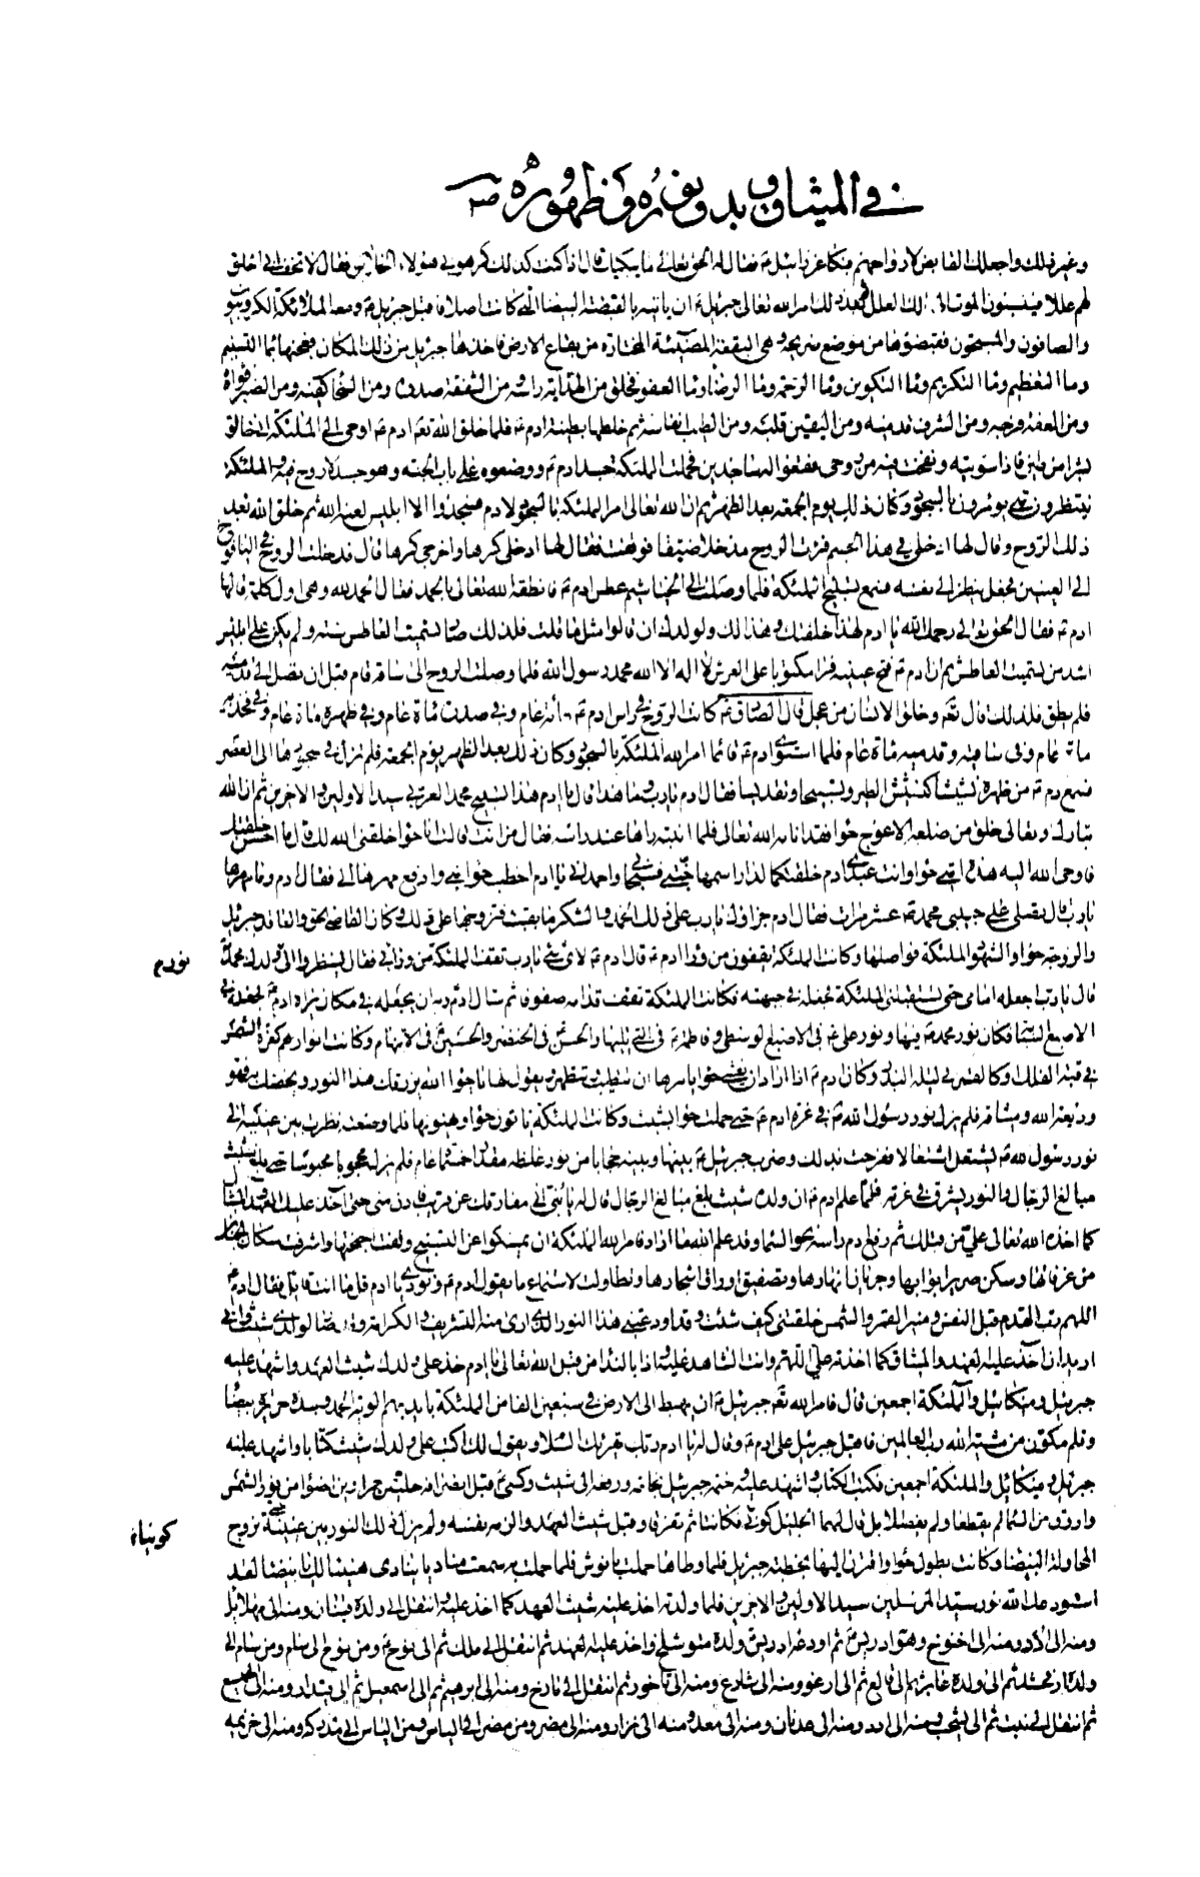 في الميثاق وبدو نوره وظهوره ص
وغير ذلك واجعلك القابض لارواحهم فبكا عزرائيل ع فقال له الحق تعالى ما يبكيك قال اذا كنت كذلك كرهوني هؤلاء الخلائق فقال لا تخف اني اخلق
لهم عللا فينسبون الموت الى تلك العلل ثم بعد ذلك امر الله تعالى جبرئيل ع ان ياتيه بالقبضة البيضا التي كانت اصلا فاقبل جبرئيل ع ومعه الملائكة الكروبيون
والصافون والمسبحون فقبضوها من موضع ضريحه وهي البقعة المضيئة المختارة من بقاع الارض فاخذها جبرئيل من ذلك المكان فعجنها بما التسنيم
وما التعظيم وما التكريم وما التكوين وما الرحمة وما الرضا وما العفو فخلق من الهداية راسه ومن الشفقة صدره ومن السخا كفيه ومن الصبر فواده
ومن العفة فرجه ومن الشرف قدميه ومن اليقين قلبه ومن الطيب انفاسه ثم خلطها بطينة ادم ع فلما خلق الله تعم ادم ع اوحى الى الملئكة اني خالق
بشرا من طين فاذا سويته ونفخت فيه من روحي فقعوا له ساجدين فحملت الملئكة جسد ادم ع ووضعوه على باب الجنة وهو جسد لا روح فيه والملئكة
ينتظرون متى يومرون بالسجود وكان ذلك يوم الجمعة بعد الظهر ثم ان الله تعالى امر الملئكة بالسجود لادم فسجدوا الا ابليس لعنه الله ثم خلق الله بعد
ذلك الروح وقال لها ادخلي في هذا الجسم فرات الروح مدخلا ضيقا فوقفت فقال لها ادخلي كرها واخرجي كرها قال فدخلت الروح في اليافوخ
الى العينين فجعل ينظر الى نفسه فسمع تسبيح الملئكة فلما وصلت الى الخياشيم عطس ادم ع فانطقه الله تعالى بالحمد فقال الحمد لله وهي اول كلمة قالها
ادم ع فقال الحق تعالى رحمك الله يا ادم لهذا خلقتك وهذا لك ولولدك ان قالوا مثل ما قلت فلذلك صار تسميت العاطس سنة ولم يكن على ابليس
اشد من تسميت العاطس ثم ان ادم ع فتح عينيه فراى مكتوبا على العرش لا اله الا الله محمد رسول الله فلما وصلت الروح الى ساقه قام قبل ان تصل الى قدميه
فلم يطق فلذلك قال تعم وخلق الانسان من عجل قال الصادق ع كانت الروح في راس ادم ع مائة عام وفي صدره مائة عام وفي ظهره مائة عام وفي فخذيه
مائة عام وفي ساقيه وقدميه مائة عام فلما استوى ادم ع قائما امر الله الملئكة بالسجود وكان ذلك بعد الظهر يوم الجمعة فلم تزل في سجودها الى العصر
فسمع ادم ع من ظهره نشيشا كنشيش الطير وتسبيحا وتقديسا فقال ادم يا رب وما هذا قال يا ادم هذا تسبيح محمد العربي سيد الاولين والاخرين ثم ان الله
تبارك وتعالى خلق من ضلعه الاعوج حوا فقد انامه الله تعالى فلما انتبه راها عند راسه فقال من انت قالت انا حوا خلقني الله لك قال ما احسن خلقتك
فاوحى الله اليه هذه امتي حوا وانت عبدي ادم خلقتكما لدار اسمها جنتي فسبحاني واحمداني يا ادم اخطب حوا مني وادفع مهرها الي فقال ادم وما مهرها
يا رب قال تصلي على حبيبي محمد ص عشر مرات فقال ادم جزاؤك يا رب على ذلك الحمد والشكر ما بقيت فتزوجها على ذلك وكان القاضي الحق والعاقد جبرئيل
والزوجة حوا والشهود الملئكة فواصلها وكانت الملئكة يقفون من وراء ادم ع قال ادم ع لاي شي يا رب تقف الملئكة من ورائي فقال لينظروا الى نور ولدك محمد ص
قال يا رب اجعله امامي حتى تستقبلني الملئكة فجعله في جبهته فكانت الملئكة تقف قدامه صفوفا ثم سال ادم ربه ان يجعله في مكان يراه ادم ع فجعله في
الاصبع السبابة فكان نور محمد ص فيها ونور علي ع في الاصبع الوسطى وفاطمة ع في التي تليها والحسن في الخنصر والحسين في الابهام وكانت انوارهم كغرة الشمس
في قبة الفلك او كالقمر في ليلة البدر وكان ادم ع اذا اراد ان يغشى حوا يامرها ان تتطيب وتتطهر ويقول لها يا حوا الله يرزقك هذا النور ويخصك به فهو
وديعة الله وميثاقه فلم يزل نور رسول الله ص في غرة ادم ع حتى حملت حوا بشيث وكانت الملئكة ياتون حوا ويهنونها فلما وضعت نظرت بين عينيه الى
نور رسول الله ص يشتعل اشتعالا ففرحت بذلك وضرب جبرئيل ع بينها وبينه حجابا من نور غلظه مقدار خمسمائة عام فلم يزل محجوبا محبوسا حتى بلغ شيث
مبالغ الرجال والنور يشرق في غرته فلما علم ادم ع ان ولده شيث بلغ مبالغ الرجال قال له يا بني اني مفارقك عن قريب فادن مني حتى آخذ عليك العهد والميثاق
كما اخذه الله تعالى علي من قبلك ثم رفع ادم راسه نحو السما وقد علم الله ما اراد فامر الله الملئكة ان يمسكوا عن التسبيح ولفت اجنحتها واشرفت سكان الجنان
من غرفاتها وسكن صرير ابوابها وجريان انهارها وتصفيق اوراق اشجارها وتطاولت لاستماع ما يقول ادم ع ونودي يا ادم قل ما انت قائل فقال ادم ع
اللهم رب القدم قبل النفس ومنير القمر والشمس خلقتني كيف شئت وقد اودعتني هذا النور الذي ارى منه التشريف والكرامة وقد صار لولدي شيث واني
اريد ان آخذ عليه العهد والميثاق كما اخذته علي اللهم وانت الشاهد عليه فاذا بالندا من قبل الله تعالى يا ادم خذ على ولدك شيث العهد واشهد عليه
جبرئيل وميكائيل والملئكة اجمعين قال فامر الله تعم جبرئيل ع ان يهبط الى الارض في سبعين الفا من الملئكة بايديهم الوية الحمد وبيده حريرة بيضا
وقلم مكون من مشية الله رب العالمين فاقبل جبرئيل على ادم ع وقال له يا ادم ربك يقرئك السلام ويقول لك اكتب على ولدك شيث كتابا واشهد عليه
جبرئيل وميكائيل والملئكة اجمعين فكتب الكتاب واشهد عليه وختمه جبرئيل بخاتمه ودفعه الى شيث وكسى قبل انصرافه حلتين حمراوين اضوا من نور الشمس
وارق من السما لم يقطعا ولم يفصلا بل قال لهما الجليل كوني فكانتا ثم تفرقا وقبل شيث العهد والزمه نفسه ولم يزل ذلك النور بين عينيه حتى تزوج
المحاولة البيضا وكانت بطول حوا واقترن اليها بخطبة جبرئيل فلما وطاها حملت بانوش فلما حملت به سمعت مناديا ينادي هنيئا لك يا بيضا لقد
استودعك الله نور سيد المرسلين سيد الاولين والاخرين فلما ولدته اخذ عليه شيث العهد كما اخذ عليه وانتقل الى ولده قينان ومنه الى مهلائيل
ومنه الى ادد ومنه الى اخنوخ وهو ادريس ع ثم اودعه ادريس ولده متوشلخ واخذ عليه العهد ثم انتقل الى ملك ثم الى نوح ع ومن نوح الى سام ومن سام الى
ولده ارفخشد ثم الى ولده عابر ثم الى فالع ثم الى ارغو ومنه الى شارغ ومنه الى تاخور ثم انتقل الى تارخ ومنه الى ابرهيم ثم الى اسمعيل ثم الى قيدار ومنه الى الهميسع
ثم انتقل الى نبت ثم الى يشجب ومنه الى ادد ومنه الى عدنان ومنه الى معد ومنه الى نزار ومنه الى مضر ومن مضر الى الياس ومن الياس الى مدركة ومنه الى خزيمه
نورم
كونياء